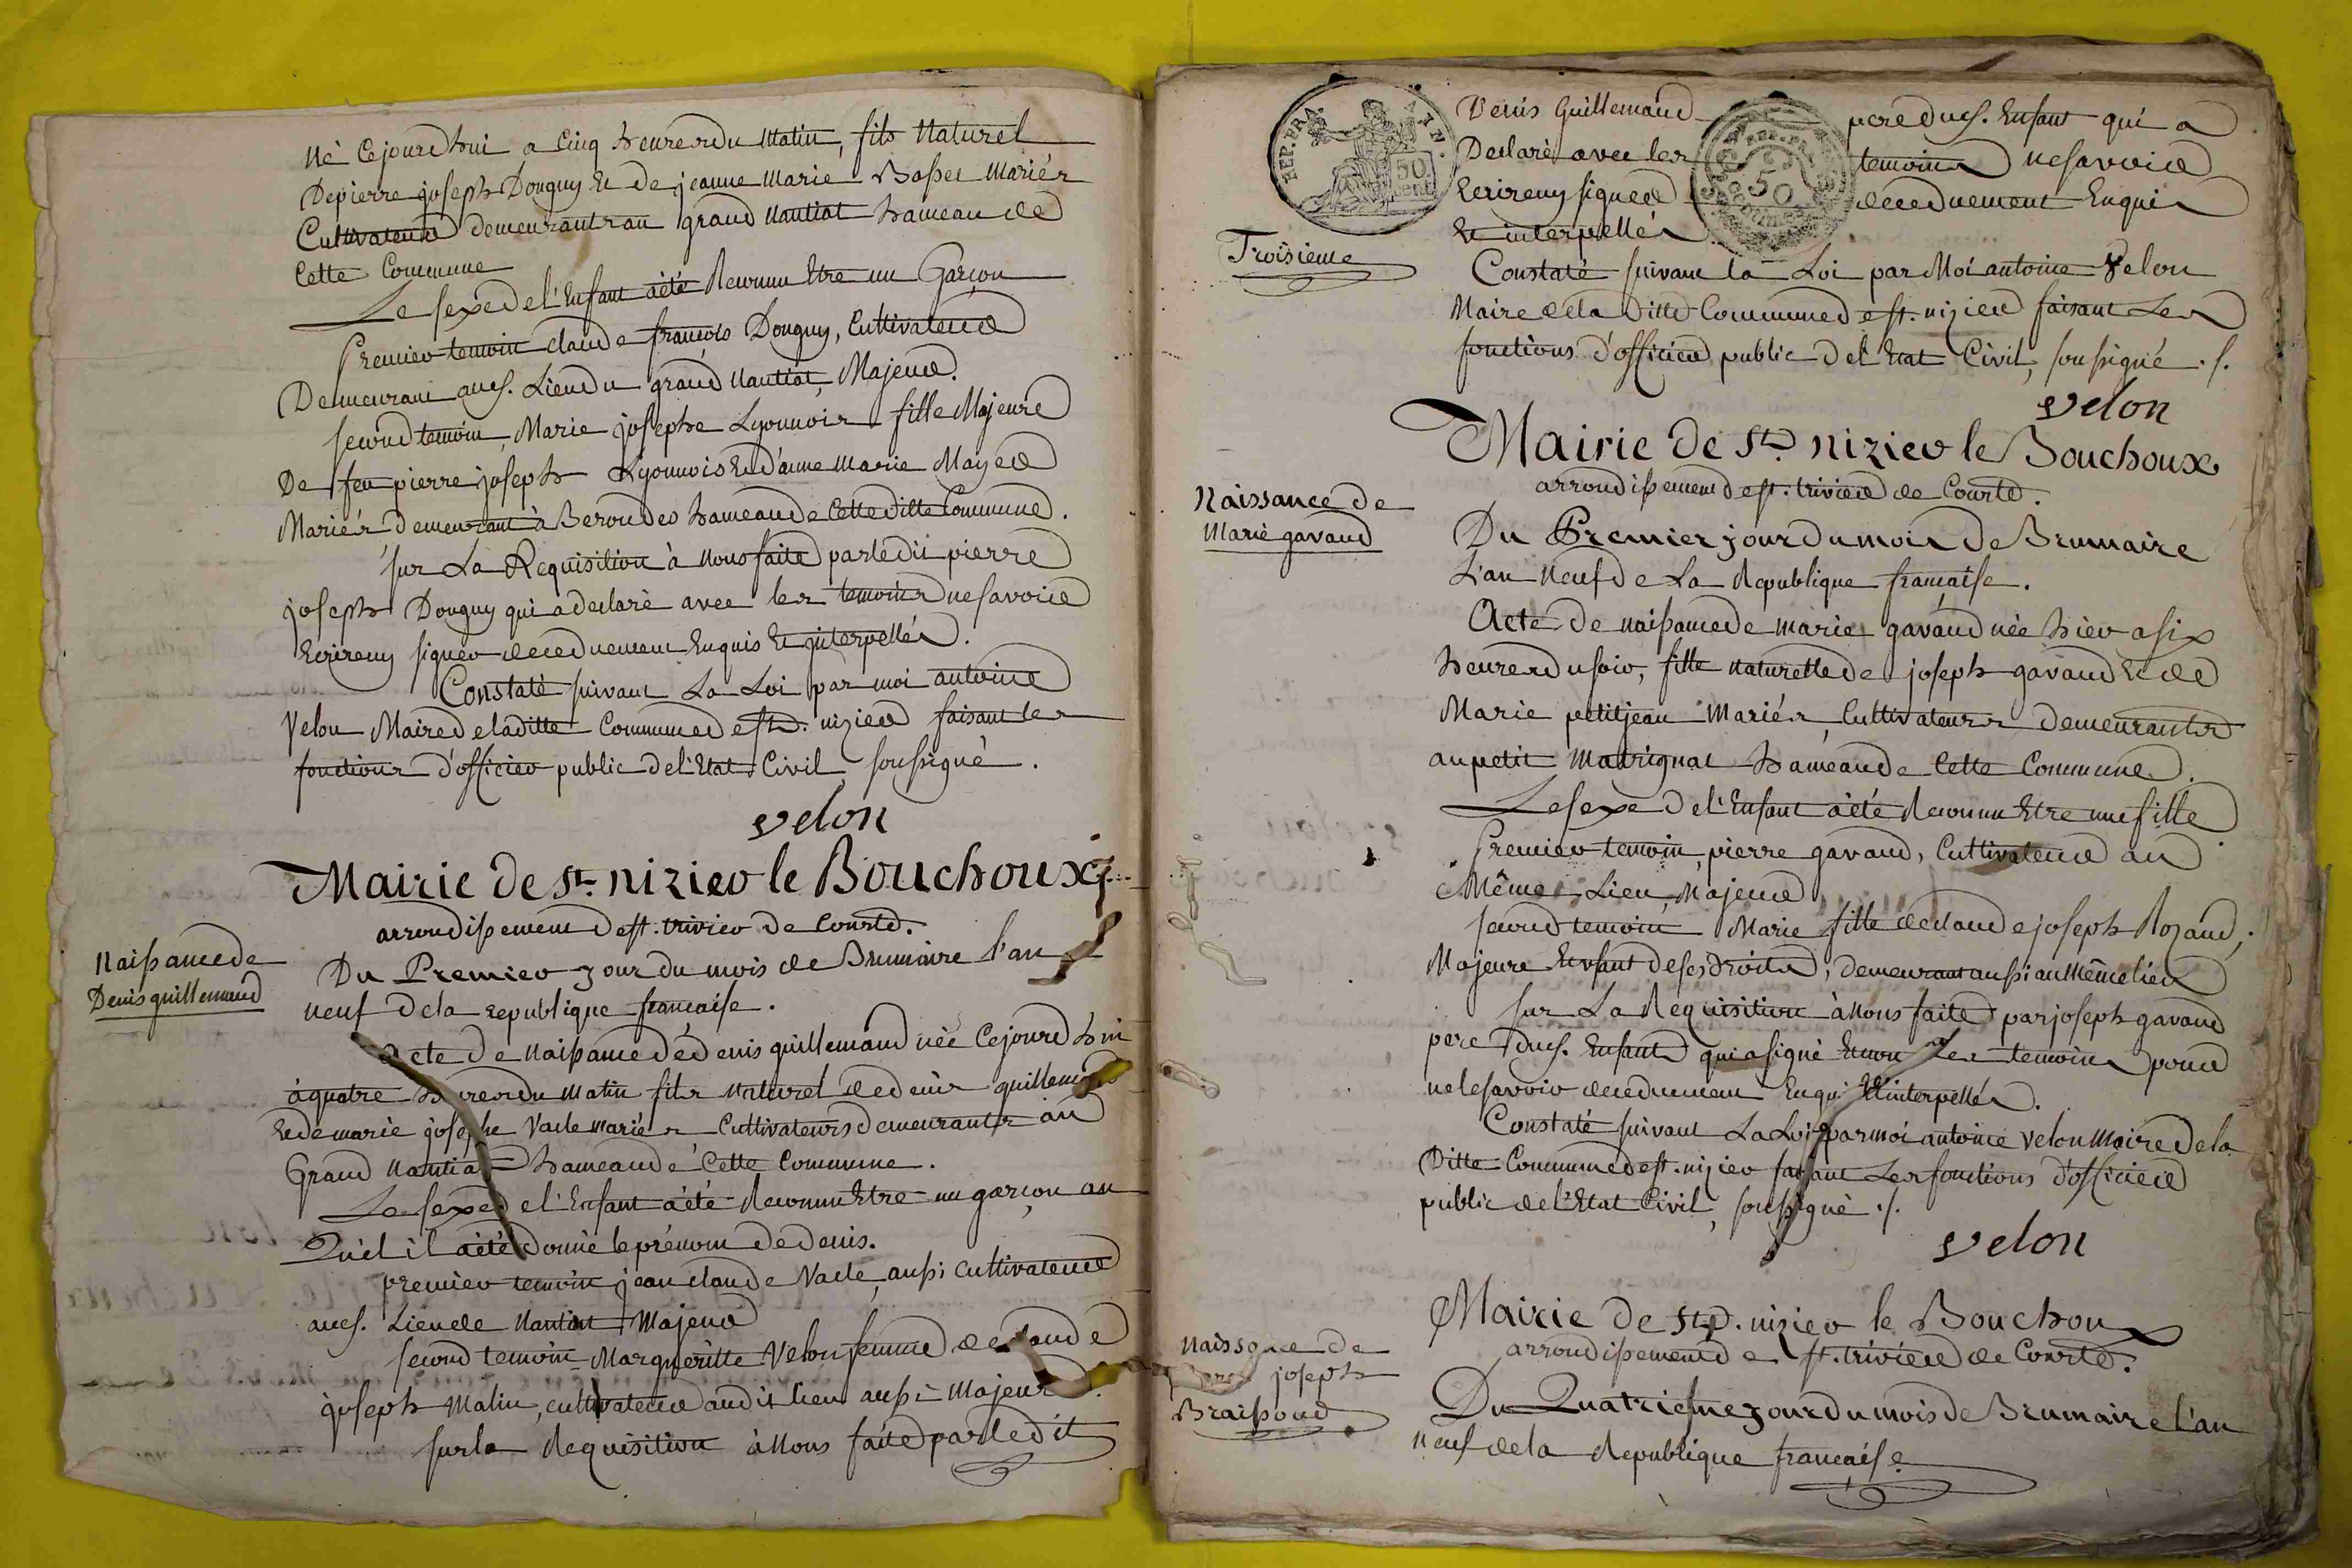 né Cejourdhui a Cinq heures du Matin, fils Naturel
De pierre joseph Donguy Et de jeanne Marie Basset Mariés
Cultivateurs demeurants au grand Nantiat hameau de
Cette Commune
Le sexe de l'Enfant a été Reconnu Etre un Garçon
Premier temoin claude françois Donguy, Cultivateur
Demeurant aud. Lieu du grand Nantiat, Majeur.
second temoin, Marie josephe Lyonnois fille Majeure
De feu pierre joseph Lyonnois Et d'anne Marie Mayer
Mariés demeurant à Beroudes hameau de Cette ditte Commune.
sur La Requisition à nous faite par ledit pierre
joseph Donguy qui a declaré avec les temoins ne savoir
Ecrire ny signer de ce duement Enquis Et interpellés.
Constaté suivant La Loi par moi antoine
Velon Maire de la ditte Commune de St. nizier faisant les
fonctions d'officier public de l'Etat Civil soussigné.
velon
Mairie de St. nizier le Bouchoux
arrondissement de st. trivier de Courte.
Naissance de
Denis guillemaud
Du Premier jour du mois de Brumaire l'an
neuf de la republique française.
acte de Naissance de denis guillemaud née Cejourdhui
à quatre heures du Matin fils naturel de denis guillemaud
Et de marie josephe Vacle mariés Cultivateurs demeurants au
Grand Nantiat hameau de Cette Commune.
Le sexe de l'Enfant a été Reconnu Etre un garçon au
Quel il a été donné le prénom de denis.
premier temoin jean claude Vacle, aussi cultivateur
aud. Lieu de Nantiat Majeur
second temoin Margueritte Velon femme de claude
joseph Malin, cultivateur audit lieu aussi Majeur
sur la Requisition à Nous faite par ledit
Denis Guillemaud pere dud. Enfant qui a
Declaré avec les temoins ne savoir
Ecrire ny signer de ce duement Enquis
Et interpellés
REP. FRA. AIN. 50 cent
50
Troisieme
Constaté suivant la Loi par Moi antoine Velon
Maire de la ditte Commune de st. nizier faisant Les
fonctions d'officier public de l'Etat Civil, soussigné ./.
velon
Mairie de St. nizier le Bouchoux
arrondissement de st. trivier de Courte.
Naissance de
Marie gavand
Du Premier jour du mois de Brumaire
L'an Neuf de La Republique française.
Acte de naissance de marie gavand née hier a six
heures du soir, fille naturelle de joseph gavand Et de
Marie petitjean Mariés, Cultivateurs demeurants
au petit Matrignat hameau de Cette Commune.
Le sexe de l'Enfant a été Reconnu Etre une fille
Premier temoin, pierre gavand, Cultivateur au
Même Lieu, Majeur
second temoin Marie fille de claude joseph Rozand,
Majeure Et usant de ses droits, demeurant aussi au Même lieu
sur La Requisition à Nous faite par joseph gavand
pere dud. Enfant qui a signé Et non Les temoins pour
ne le savoir de ce duement Enquis Et interpellés.
Constaté suivant La Loi par moi antoine velon Maire de la
Ditte Commune de st. nizier faisant Les fonctions d'officier
public de l'Etat Civil, soussigné ./.
velon
Mairie de St. nizier le Bouchoux
arrondissement de st. trivier de Courte.
Naissance de
joseph
Braissoud
Du Quatriesme jour du mois de Brumaire l'an
Neuf de la Republique française